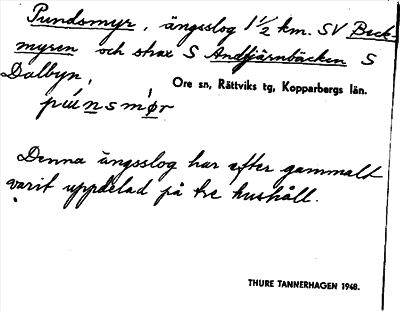 Pundsmyr, ängsslog 1 1/2 km. SV Beck-
myren och strax S Andtjärnbäcken S
Dalbyn,
Ore sn, Rättviks tg, Kopparbergs län.
púnsmør
Denna ängsslog har efter gammalt
varit uppdelad på tre hushåll.
THURE TANNERHAGEN 1948.